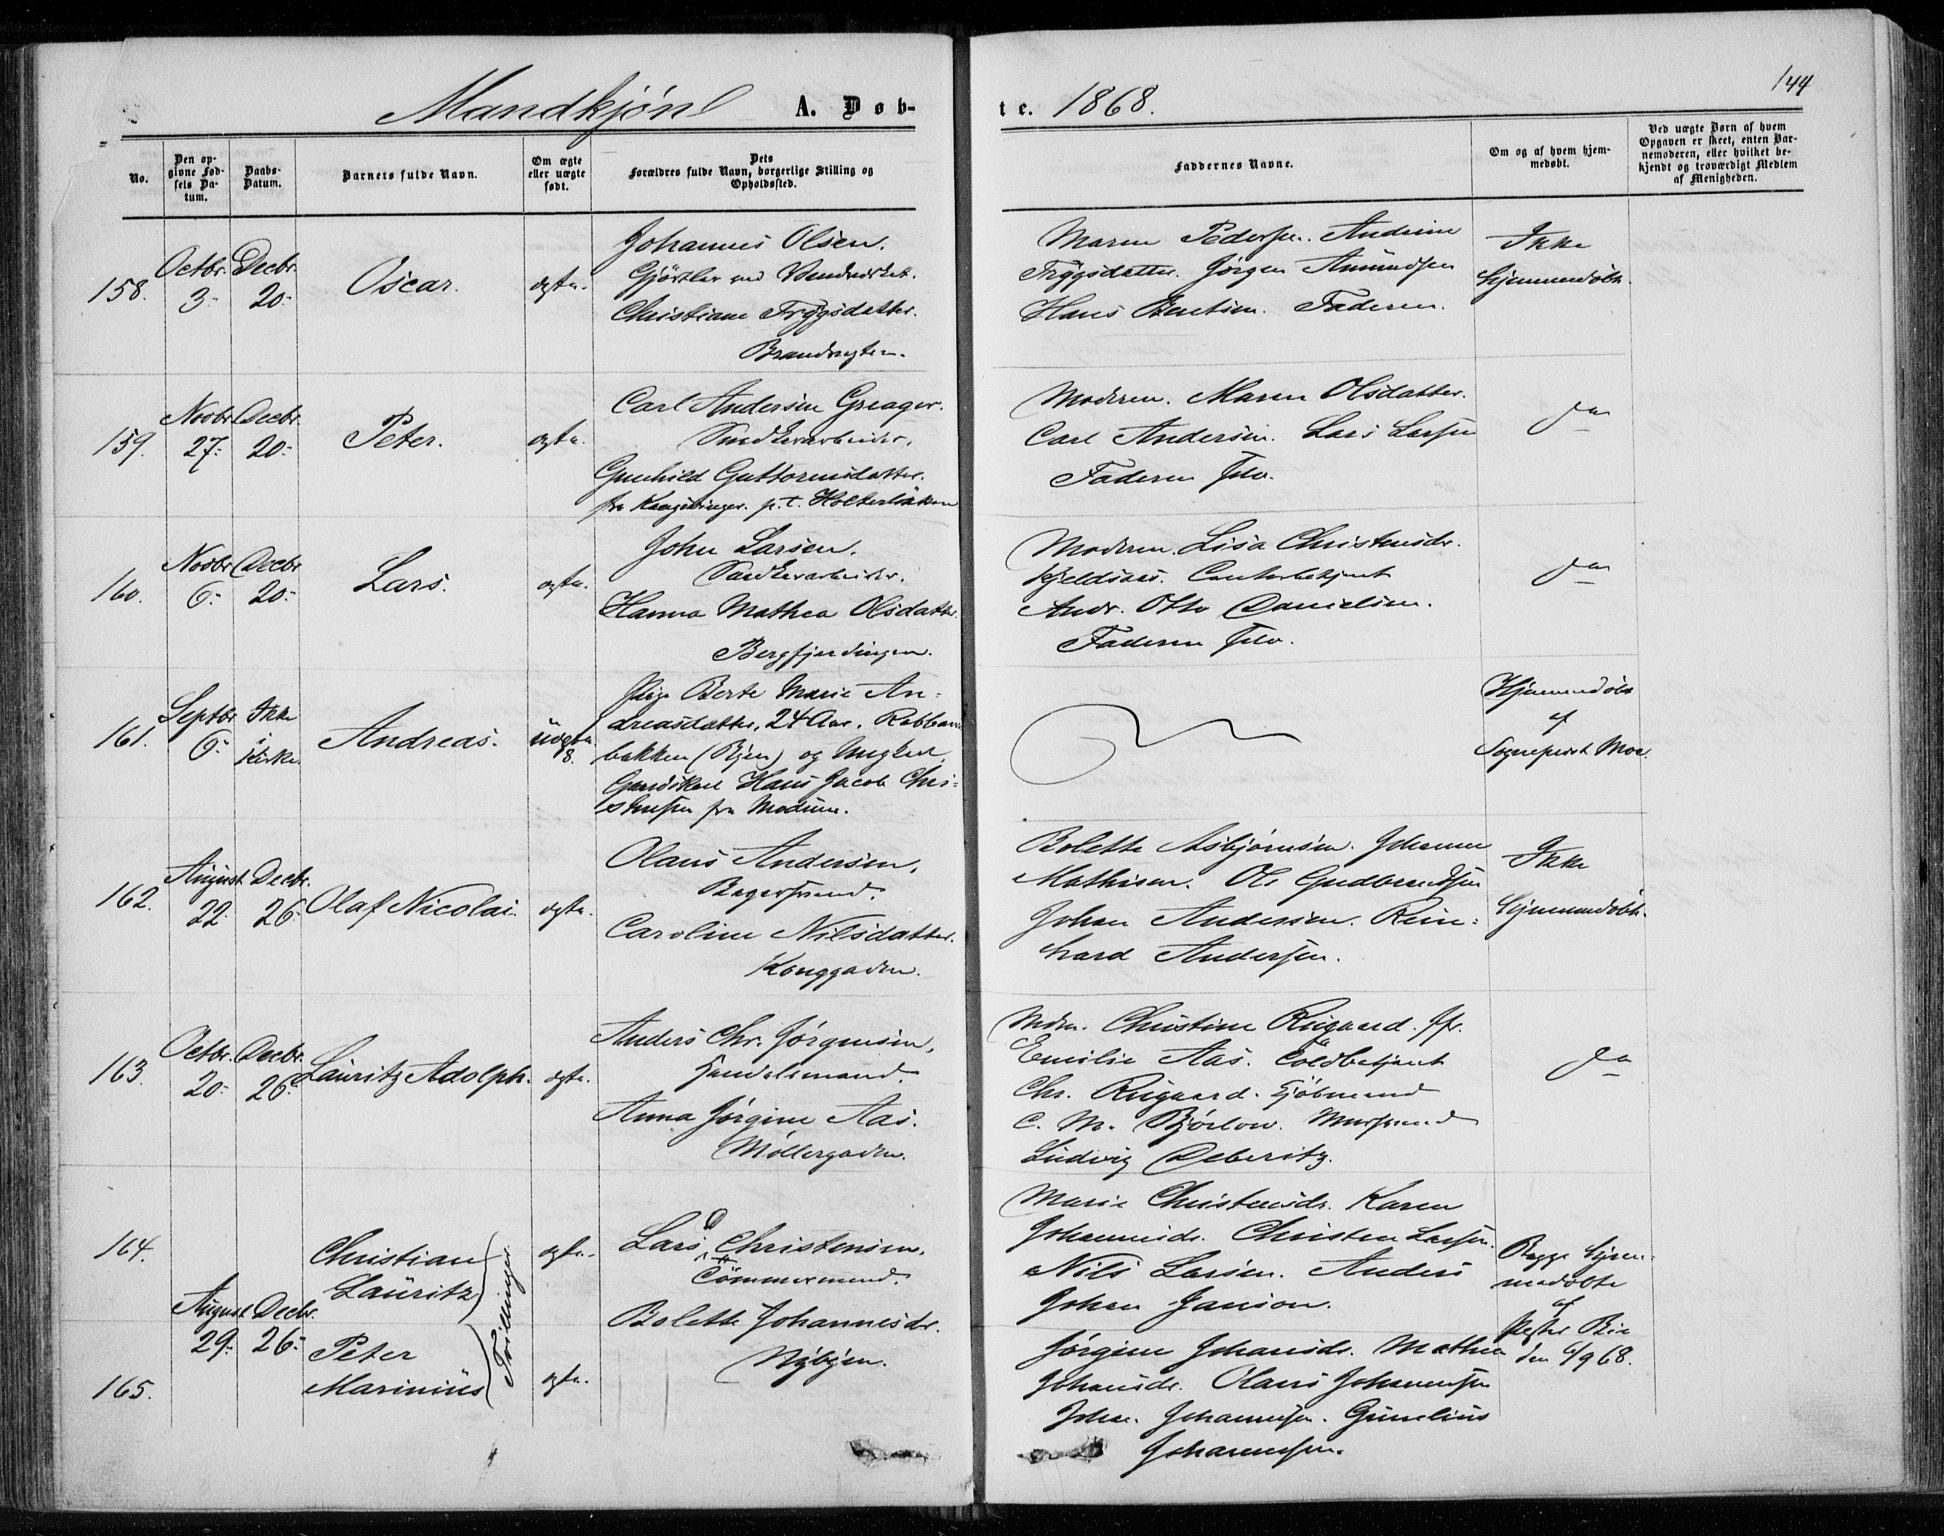 Mandkjøn A. Døb-
te. 1868.
144
No.
Den op-
givne Fød-
sels Da-
tum.
Daabs-
Datum.
Barnets fulde Navn.
Om ægte
eller uægte
født.
Dets
Forældres fulde Navn, borgerlige Stilling og
Opholdssted.
Faddernes Navne.
Om og af hvem hjem-
medøbt.
Ved uægte Børn af hvem
Opgaven er skeet, enten Bar-
nemoderen, eller hvilket be-
kjendt og troværdigt Medlem
af Menigheden.
158.
Octbr.
3.
Decbr.
20.
Oscar.
ægte.
Johannes Olsen.
Gjörtler ved
Christiane Trygsdatter.
Brandvagten.
Maren Pedersen. Andrine
Trygsdatter. Jörgen Amundsen
Hans Bentsen. Faderen.
Ikke
hjemmedøbt.
159.
Novbr.
27.
Decbr.
20.
Peter.
ægte.
Carl Andersen Greager.
Snedkerarbeider.
Gunhild Guttormsdatter.
fra Kongsvinger. p.t. Holterløkken
Moderen. Maren Olsdatter.
Carl Andersen. Lars Larsen
Faderen selv.
Do
160.
Novbr.
6.
Decbr.
20.
Lars.
ægte.
John Larsen.
Snedkerarbeider.
Hanna Mathea Olsdatter.
Bergfjerdingen.
Moderen. Lisa Christensdr.
Kjeldsaas. Contorbetjent
Andr. Otto Danielsen.
Faderen selv.
Do
161.
Septbr.
6.
Ikke
i
Kirke.
Andreas.
uægte
8.
Pige Berte Marie An-
dreasdatter, 24 Aar, Rabbarm
bakken (Byen) og Ungkarl
Gaardskarl Hans Jacob Chri-
stensen fra Modum.
Hjemmedøbt
af
Sogneprest Moe.
162.
August
22.
Decbr.
26.
Olaf Nicolai.
ægte.
Olaus Andersen,
Bagersvend.
Caroline Nilsdatter.
Konggaden.
Bolette Asbjørnsen. Johanne
Mathisen. Ole Gudbrandsen
Johan Andersen. Rein-
hard Andersen.
Ikke
hjemmedøbt.
163.
Octbr.
20.
Decbr.
26.
Lauritz Adolph.
ægte.
Anders Chr. Jörgensen,
Handelsmand.
Anna Jørgine Aas.
Møllergaden.
Mdm. Christine Riigaard. Jfr.
Emilie Aas. Toldbetjent
Chr. Riigaard. Kjöbmand
C. M. Bjørlow. Mursvend
Ludvig Deberitz.
Do
164.
Christian
Lauritz
ægte.
August
29.
Decbr.
26.
Tvillinger.
165.
Peter
Marinius
ægte.
Lars Christensen,
Tømmermand.
Bolette Johannesdr.
Nybyen.
Marie Christensdr. Karen
Johannesdr. Christen Larsen.
Nils Larsen. Anders
Johan Janson.
Jørgine Johansdr. Mathea
Johansdr. Olaus Johannesen
Johan Johannesen. Gunelius
Johannesen.
Begge hjem-
medøbte
af
Pastor Bie
den 6/9 68.